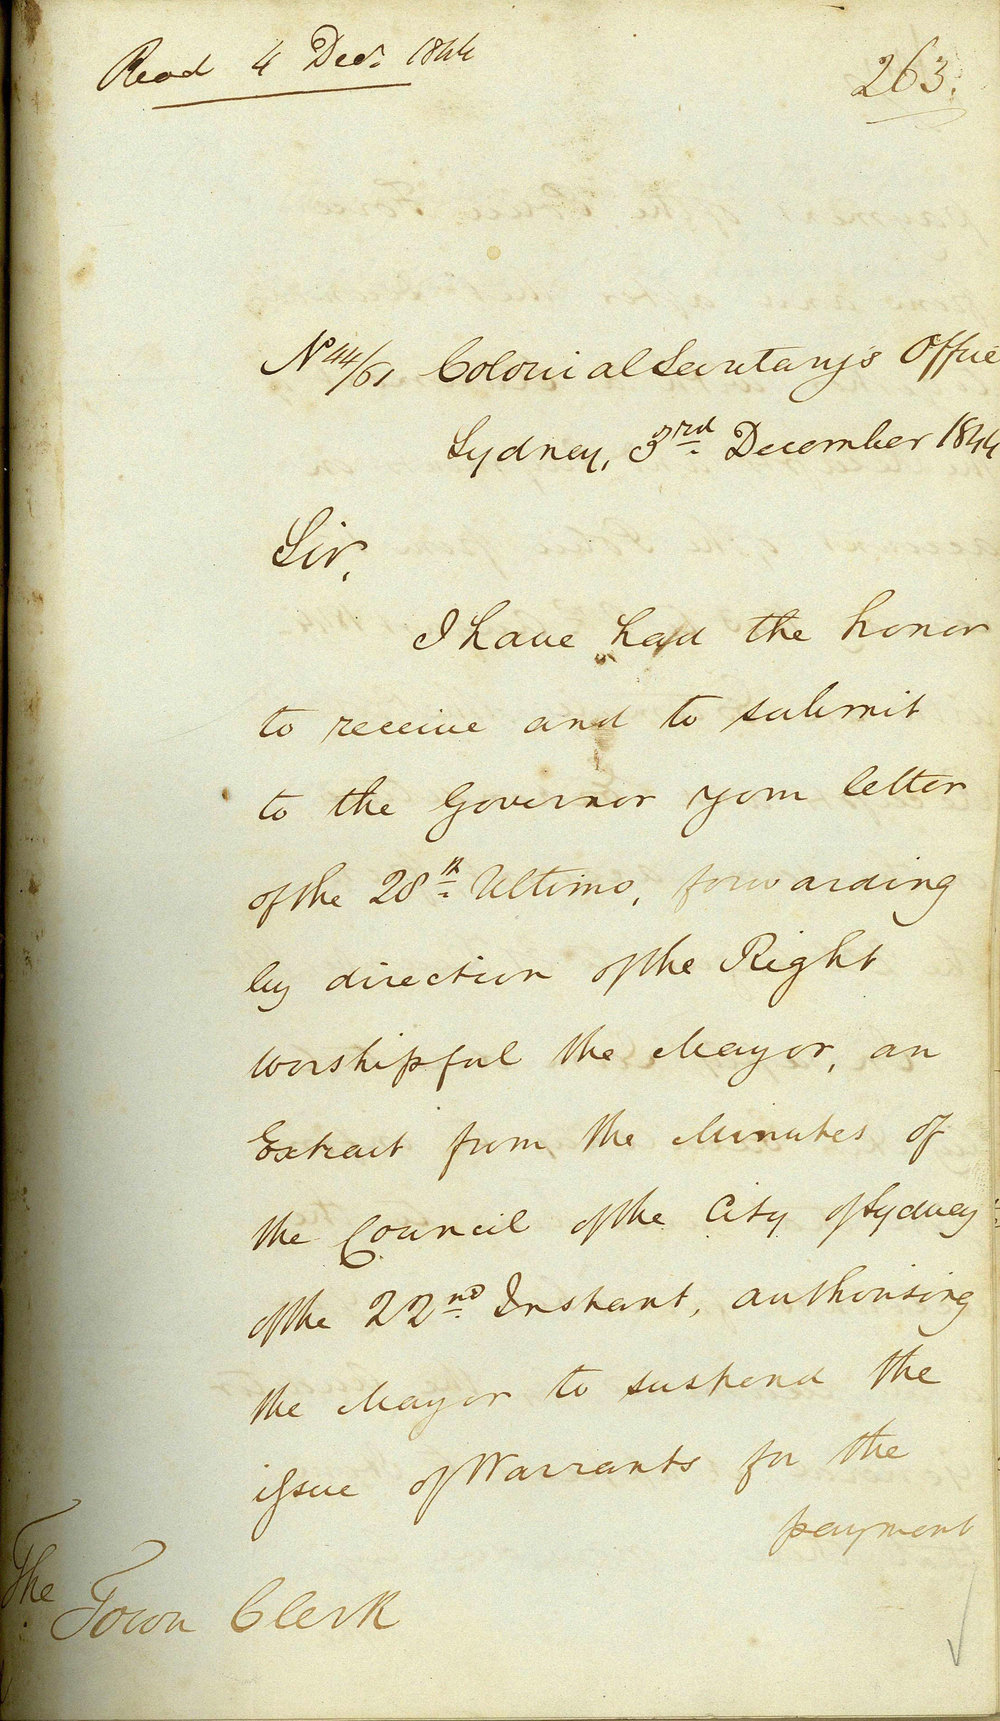 Read 4 Decr. 1844
263.
No 44/61 Colonial Secretary's Office
Sydney, 3rd December 1844
Sir,
I have had the honor
to receive and to submit
to the Governor your letter
of the 28th Ultimo, forwarding
by direction of the Right
Worshipful the Mayor, an
Extract from the Minutes of
the Council of the City of Sydney
of the 22nd Instant, authorising
the Mayor to suspend the
issue of Warrants for the
payment
The
Town Clerk